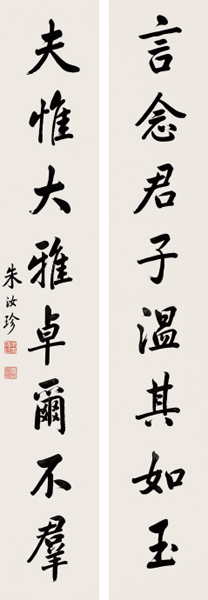 言念君子溫其如玉
夫惟大雅卓爾不羣
朱汝珍